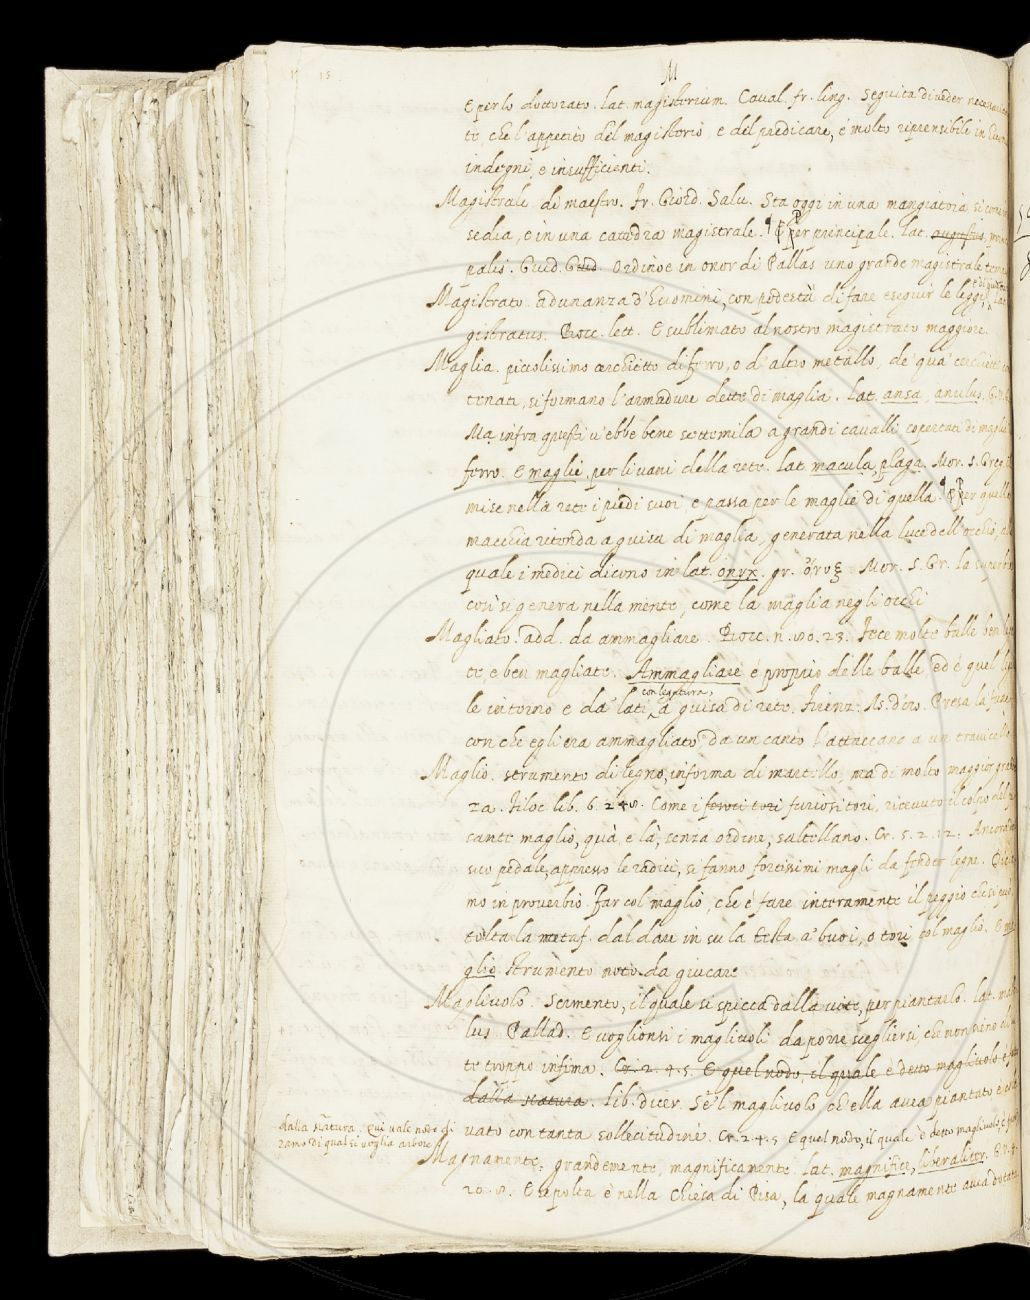 M
E per lo dottorato. Lat. magisterium. Caval. fr. ling. Seguita di veder
to, che l'appetito del magisterio e del predicare, é molto reprensibile in
indegni, e insufficienti.
Magistrale di maestro. Fr. Giord. Salv. Sta oggi in una mangiatoia, si come in
sedia, e in una catedra magistrale. ¶ E per principale. Lat. augustus, princi
palis. Guid. Guid. Ordinoe in onor di Pallas uno grande magistrale
Magistrato. adunanza d'huomini, con podestà di fare eseguir le leggi, Lat.
gistratus. Bocc. lett. E sublimato al nostro magistrato maggiore.
Maglia. piccolissimo cerchietto di ferro, o d'altro metallo, de' qua' cerchietti
tenati, si formano l'armadure dette di maglia. Lat. ansa, anulus. G.V.
Ma infra questi v'ebbe bene settemila a grandi cavalli copertati di maglia
ferro. E maglie, per li vani della rete. Lat. macula, plaga. Mor. S. Greg.
mise nella rete i piedi suoi e passa per le maglie di quella. ¶ E per quella
macchia ritonda a guisa di maglia, generata nella luce dell'occhio, al
quale i medici dicono in lat. onyx. gr. ὄνυξ. Mor. S. Gr. la superbia
così si genera nella mente, come la maglia negli occhi
Magliato. add. da ammagliare. Bocc. n. 80. 23. Fece molte balle ben
te, e ben magliate. Ammagliare é proprio delle balle ed é quel
le intorno e da' lati, con legatura, a guisa di rete. Firenz. As. d'oro. Presa la fune
con che egli era ammagliato, da un canto l'attaccano a un travicello
Maglio. strumento di legno, in forma di martello, ma di molto maggior gra
za. Filoc. lib. 6. 248. Come i feroci tori furiosi tori, ricevuto il colpo del
sante maglio, quà, e là, senza ordine, saltellano. Cr. 5. 2. 12. Ancora
suo pedale, appresso le radici, si fanno fortissimi magli da fender legne. Dicia
mo in proverbio. Far col maglio, che é fare interamente il peggio che si può
tolta la metaf. dal dare in su la testa a' buoi, o tori col maglio. E ma
glio strumento noto da giucare
Magliuolo. Sermento, il quale si spicca dalla vite, per piantarlo. Lat. mal
lus. Pallad. E voglionsi i magliuoli da porre scegliersi, che non sieno
te troppo infima. Cr. 2. 4. 5. E quel nodo, il quale è detto magliuolo
dalla natura. Lib. dicer. Se 'l magliuolo ch'ella avea piantato e
vato con tanta sollecitudine. Cr. 2. 4. 5 E quel nodo, il quale è detto magliuolo, é
dalla natura. Quì vale nodo di
ramo di qual si voglia arbore
Magnamente, grandemente, magnificamente. Lat. magnifice, liberaliter. G.V.
20. 8. E sepolta è nella Chiesa di Pisa, la quale magnamente avea dotata